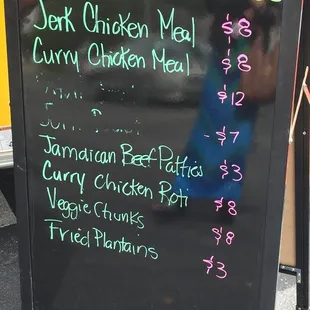 Jerk Chicken Meal $8
Curry Chicken Meal $8
$12
- $7
Jamaican Beef Pattics $3
Curry Chicken Roti $8
Veggie Chunks $8
Fried Plantains $3